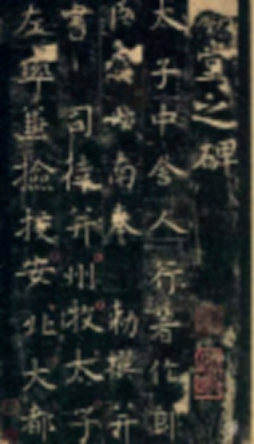 堂之碑
太子中舍人行著作郎
臣虞世南奉 勅撰并
書 司徒并州牧太子
左率兼撿挍安北大都